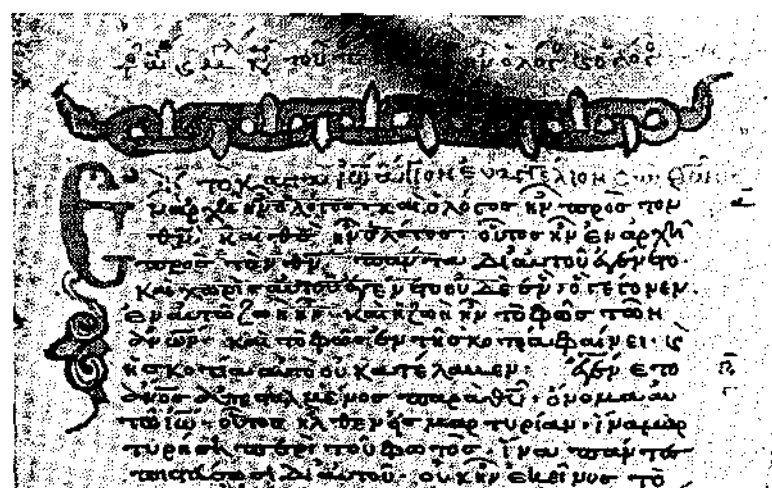 τὸ κατὰ ἰω ἅγιον εὐαγγέλιον
Ἐν ἀρχῆ ἦν ὁ λόγος καὶ ὁ λόγος ἦν πρὸς τὸν
θν· καὶ θς ἦν ὁ λόγος· οὗτος ἦν ἐν ἀρχῆ
πρὸς τὸν θν· πάντα δι' αὐτοῦ ἐγένετο·
καὶ χωρὶς αὐτοῦ ἐγένετο οὐδὲ ἓν· ὃ γέγονεν·
ἐν αὐτῶ ζωὴ ἦν· καὶ ἡ ζωὴ ἦν τὸ φῶς τῶν
ἀνων· καὶ τὸ φῶς ἐν τῆ σκοτία φαίνει· ϗ
ἡ σκοτία αὐτὸ οὐ κατέλαβεν· ἐγένετο
ἄνος ἀπεσταλμένος παρὰ θυ· ὄνομα αὐ
τῶ ἰω· οὗτος ἦλθεν εἰς μαρτυρίαν· ἵνα μαρ
τυρήση περὶ τοῦ φωτὸς· ἵνα πάντες
πιστεύσωσι δι' αὐτοῦ· οὐκ ἦν ἐκεῖνος τὸ